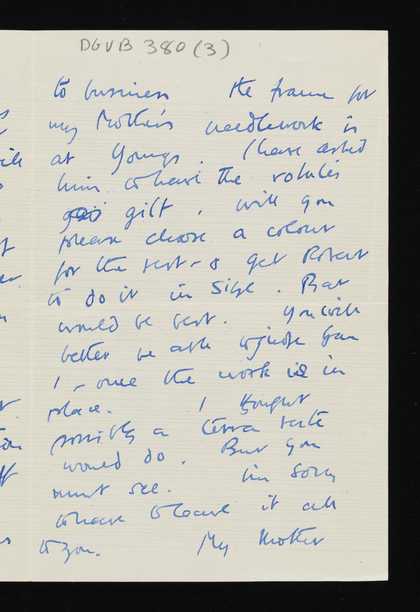 DGVB 380 (3)
to business the frame for
my Mother's needlework is
at Youngs. I have asked
him to have the
gilt, will you
please choose a colour
for the rest - & get Robert
to do it in Size. That
would be best. You will
better be able to judge than
I - once the work is in
place. I thought
possibly a terra
would do. But you
must see. I'm sorry
to have to leave it all
to you. My Mother